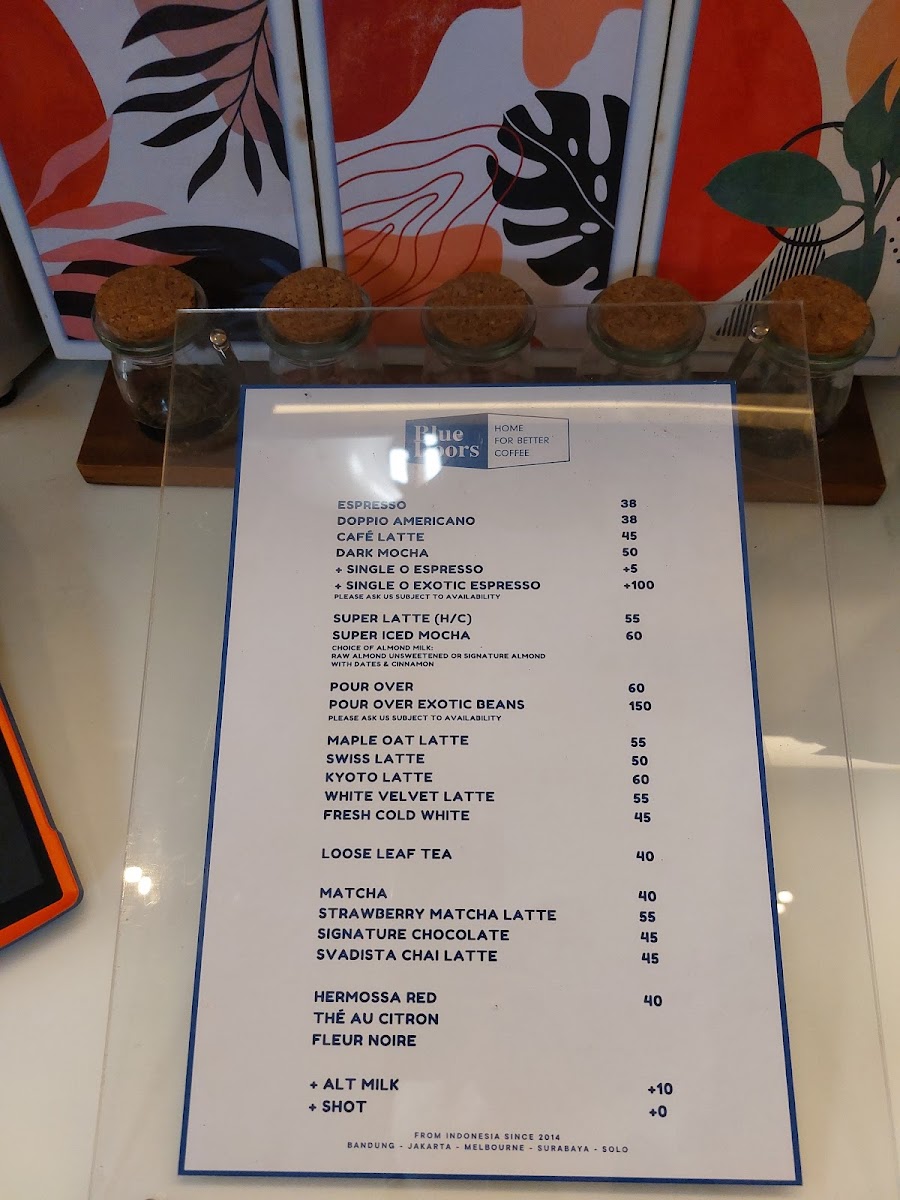 Blue Doors
HOME
FOR BETTER
COFFEE
ESPRESSO 38
DOPPIO AMERICANO 38
CAFÉ LATTE 45
DARK MOCHA 50
+ SINGLE O ESPRESSO +5
+ SINGLE O EXOTIC ESPRESSO +100
PLEASE ASK US SUBJECT TO AVAILABILITY
SUPER LATTE (H/C) 55
SUPER ICED MOCHA 60
CHOICE OF ALMOND MILK:
RAW ALMOND UNSWEETENED OR SIGNATURE ALMOND
WITH DATES & CINNAMON
POUR OVER 60
POUR OVER EXOTIC BEANS 150
PLEASE ASK US SUBJECT TO AVAILABILITY
MAPLE OAT LATTE 55
SWISS LATTE 50
KYOTO LATTE 60
WHITE VELVET LATTE 55
FRESH COLD WHITE 45
LOOSE LEAF TEA 40
MATCHA 40
STRAWBERRY MATCHA LATTE 55
SIGNATURE CHOCOLATE 45
SVADISTA CHAI LATTE 45
HERMOSSA RED 40
THÉ AU CITRON
FLEUR NOIRE
+ ALT MILK +10
+ SHOT +0
FROM INDONESIA SINCE 2014
BANDUNG - JAKARTA - MELBOURNE - SURABAYA - SOLO